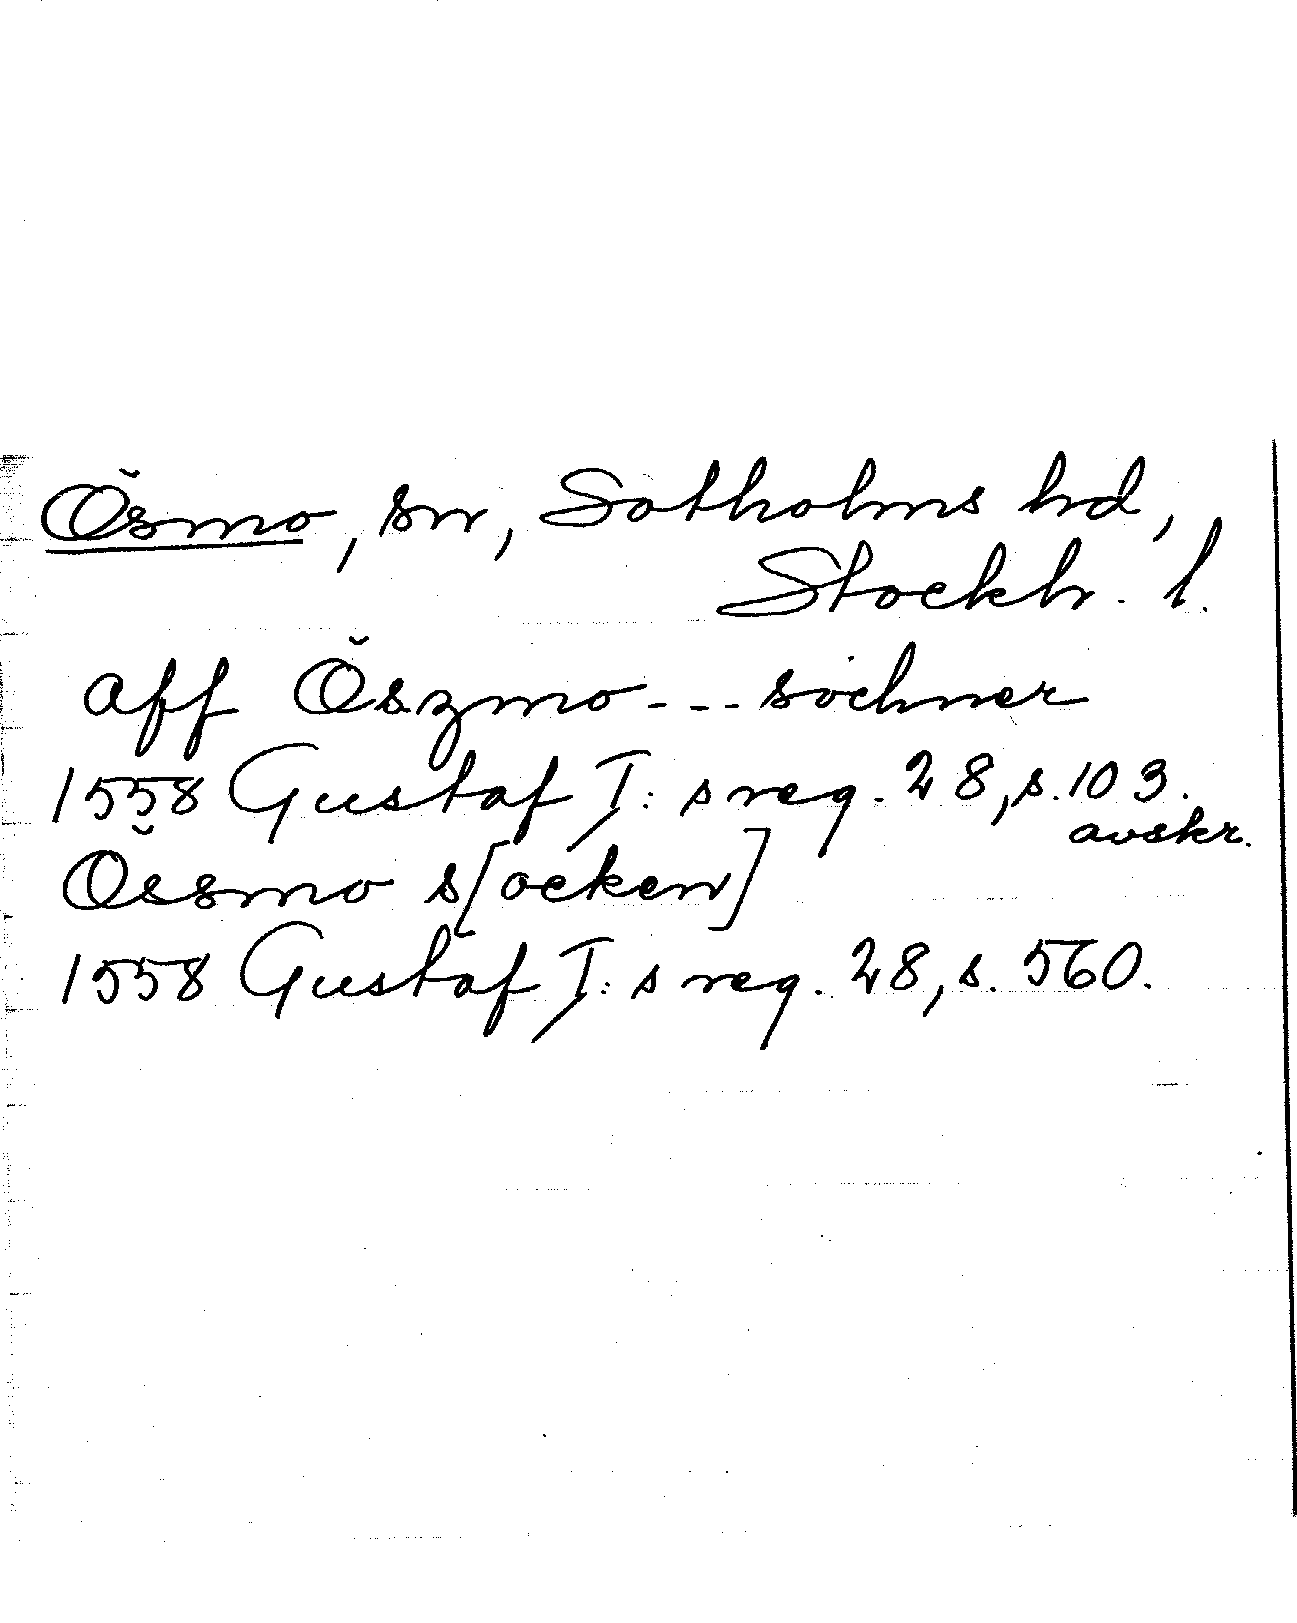 Ösmo, sn, Sotholms hd,
Stockh. l.
aff Öszmo --- sochner
1558 Gustaf I:s reg. 28, s. 103.
avskr.
Össmo s[ocken]
1558 Gustaf I:s reg. 28, s. 560.